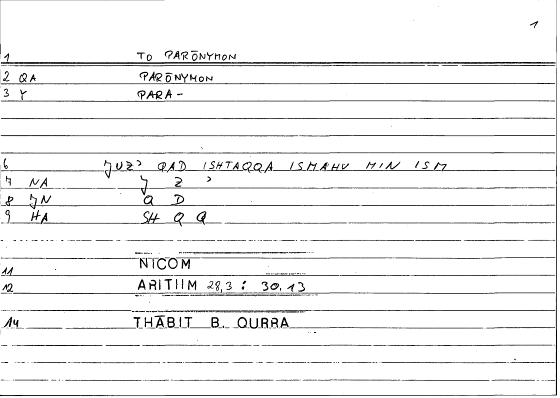 1
1 TO PARŌNYMON
2 QA PARŌNYMON
3 Y PARA-
6 ǦUZʾ QAD ISHTAQQA ISMAHU MIN ISM
7 NA Ǧ Z ʾ
8 ǦN Q D
9 HA SH Q Q
11 NICOM
12 ARITIIM 28,3 : 30,13
14 THĀBIT B. QURRA